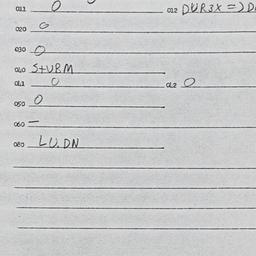 011 0 012 DUR3X =) D
020 0
030 0
040 S+URM
041 0 042 0
050 0
060 –
080 LU.DN